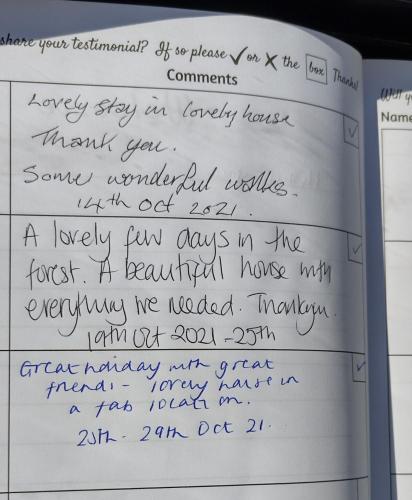 share your testimonial? If so please ✓ or ✗ the box Thanks!
Comments
Lovely stay in lovely house
Thank you.
Some wonderful walks.
14th Oct 2021.
A lovely few days in the
forest. A beautiful house with
everything we needed. Thankyou.
19th Oct 2021 - 25th
Great holiday with great
friends - lovely house in
a fab location.
25th - 29th Oct 21.
Will
Name